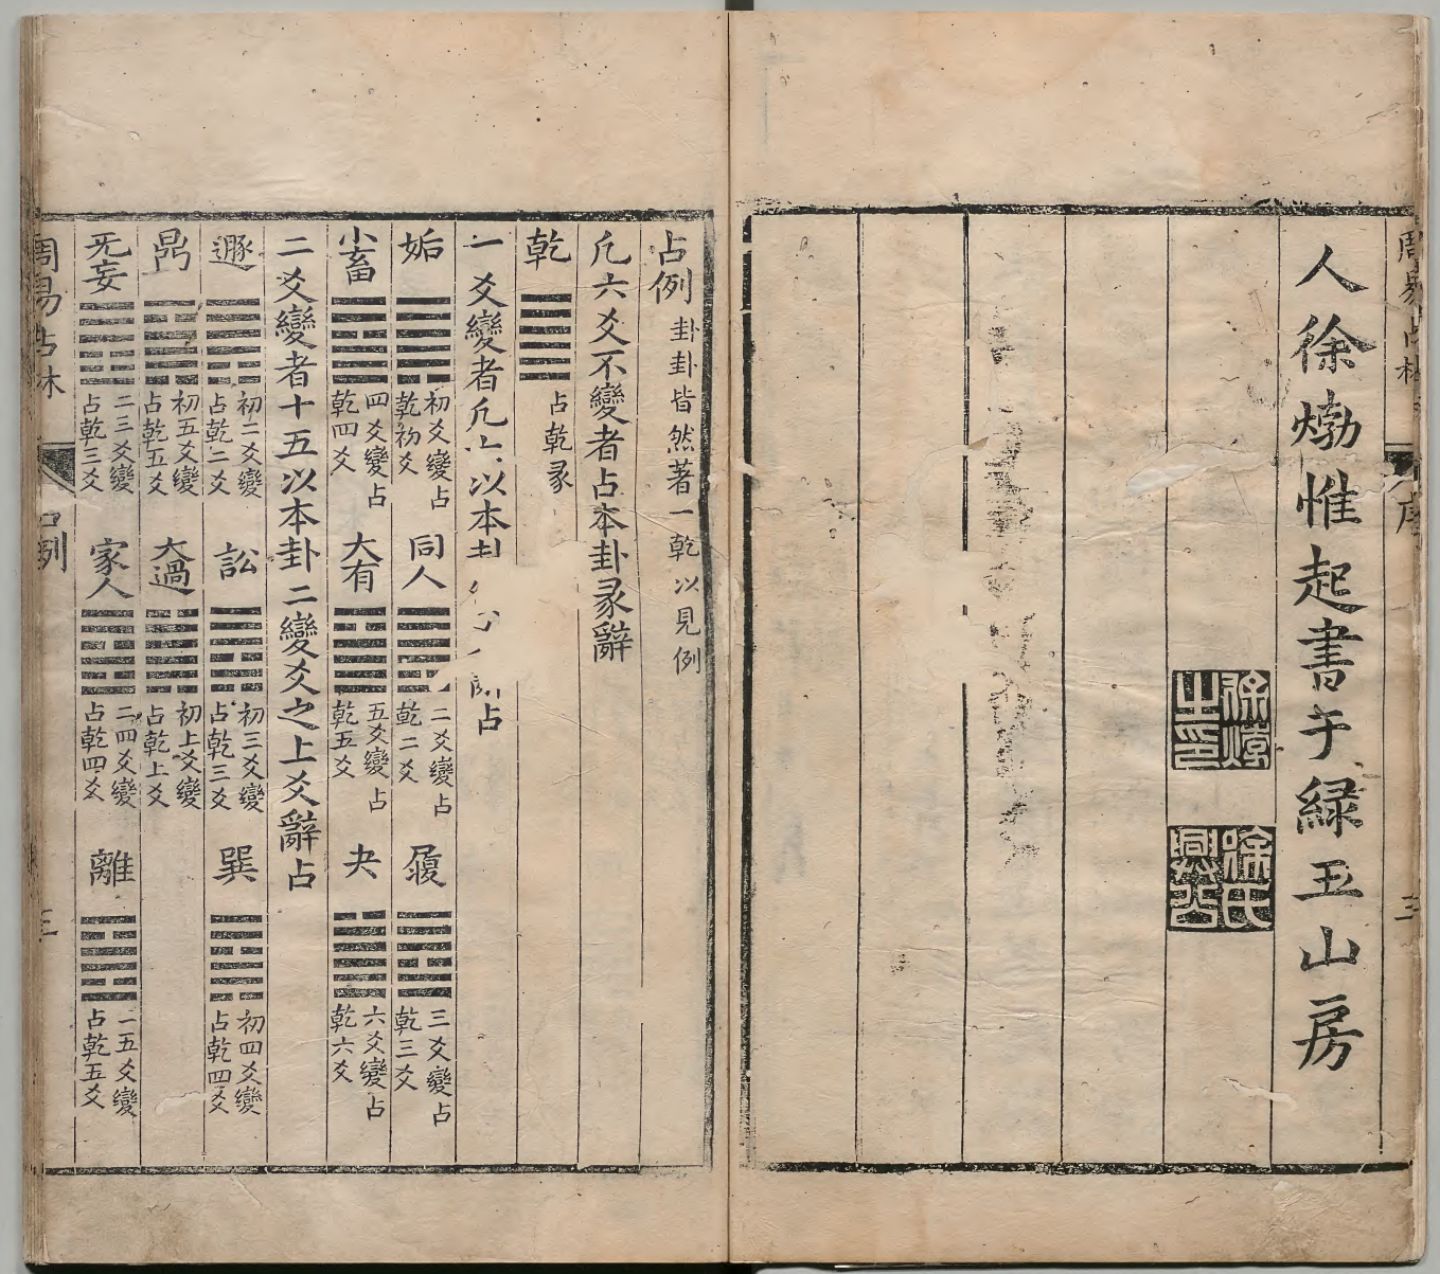 周易占林
序
三
人徐𤊹惟起書于緑玉山房
徐𤊹之印
徐氏興公
占例 卦卦皆然著一乾以見例
凡六爻不變者占本卦彖辭
乾 占乾彖
一爻變者凡六以本卦 占
姤 初爻變占乾初爻 同人 二爻變占乾二爻 履 三爻變占乾三爻
小畜 四爻變占乾四爻 大有 五爻變占乾五爻 夬 六爻變占乾六爻
二爻變者十五以本卦二變爻之上爻辭占
遯 初二爻變占乾二爻 訟 初三爻變占乾三爻 巽 初四爻變占乾四爻
鼎 初五爻變占乾五爻 大過 初上爻變占乾上爻
无妄 二三爻變占乾三爻 家人 二四爻變占乾四爻 離 二五爻變占乾五爻
周易占林
占例
三